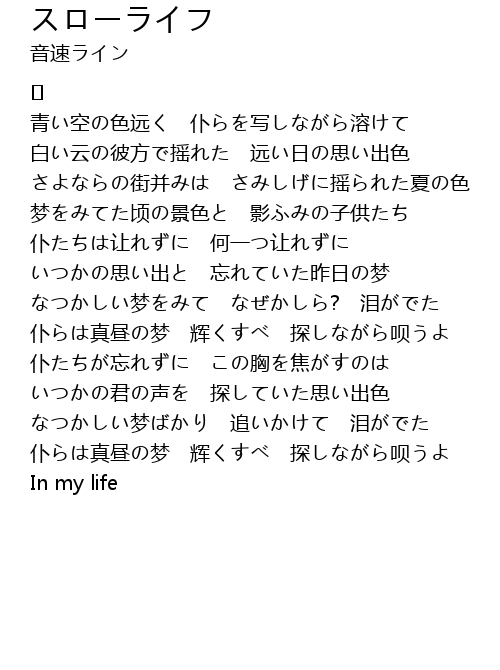 スローライフ
音速ライン
[]
青い空の色远く　仆らを写しながら溶けて
白い云の彼方で揺れた　远い日の思い出色
さよならの街并みは　さみしげに揺られた夏の色
梦をみてた顷の景色と　影ふみの子供たち
仆たちは让れずに　何一つ让れずに
いつかの思い出と　忘れていた昨日の梦
なつかしい梦をみて　なぜかしら?　泪がでた
仆らは真昼の梦　辉くすべ　探しながら呗うよ
仆たちが忘れずに　この胸を焦がすのは
いつかの君の声を　探していた思い出色
なつかしい梦ばかり　追いかけて　泪がでた
仆らは真昼の梦　辉くすべ　探しながら呗うよ
In my life